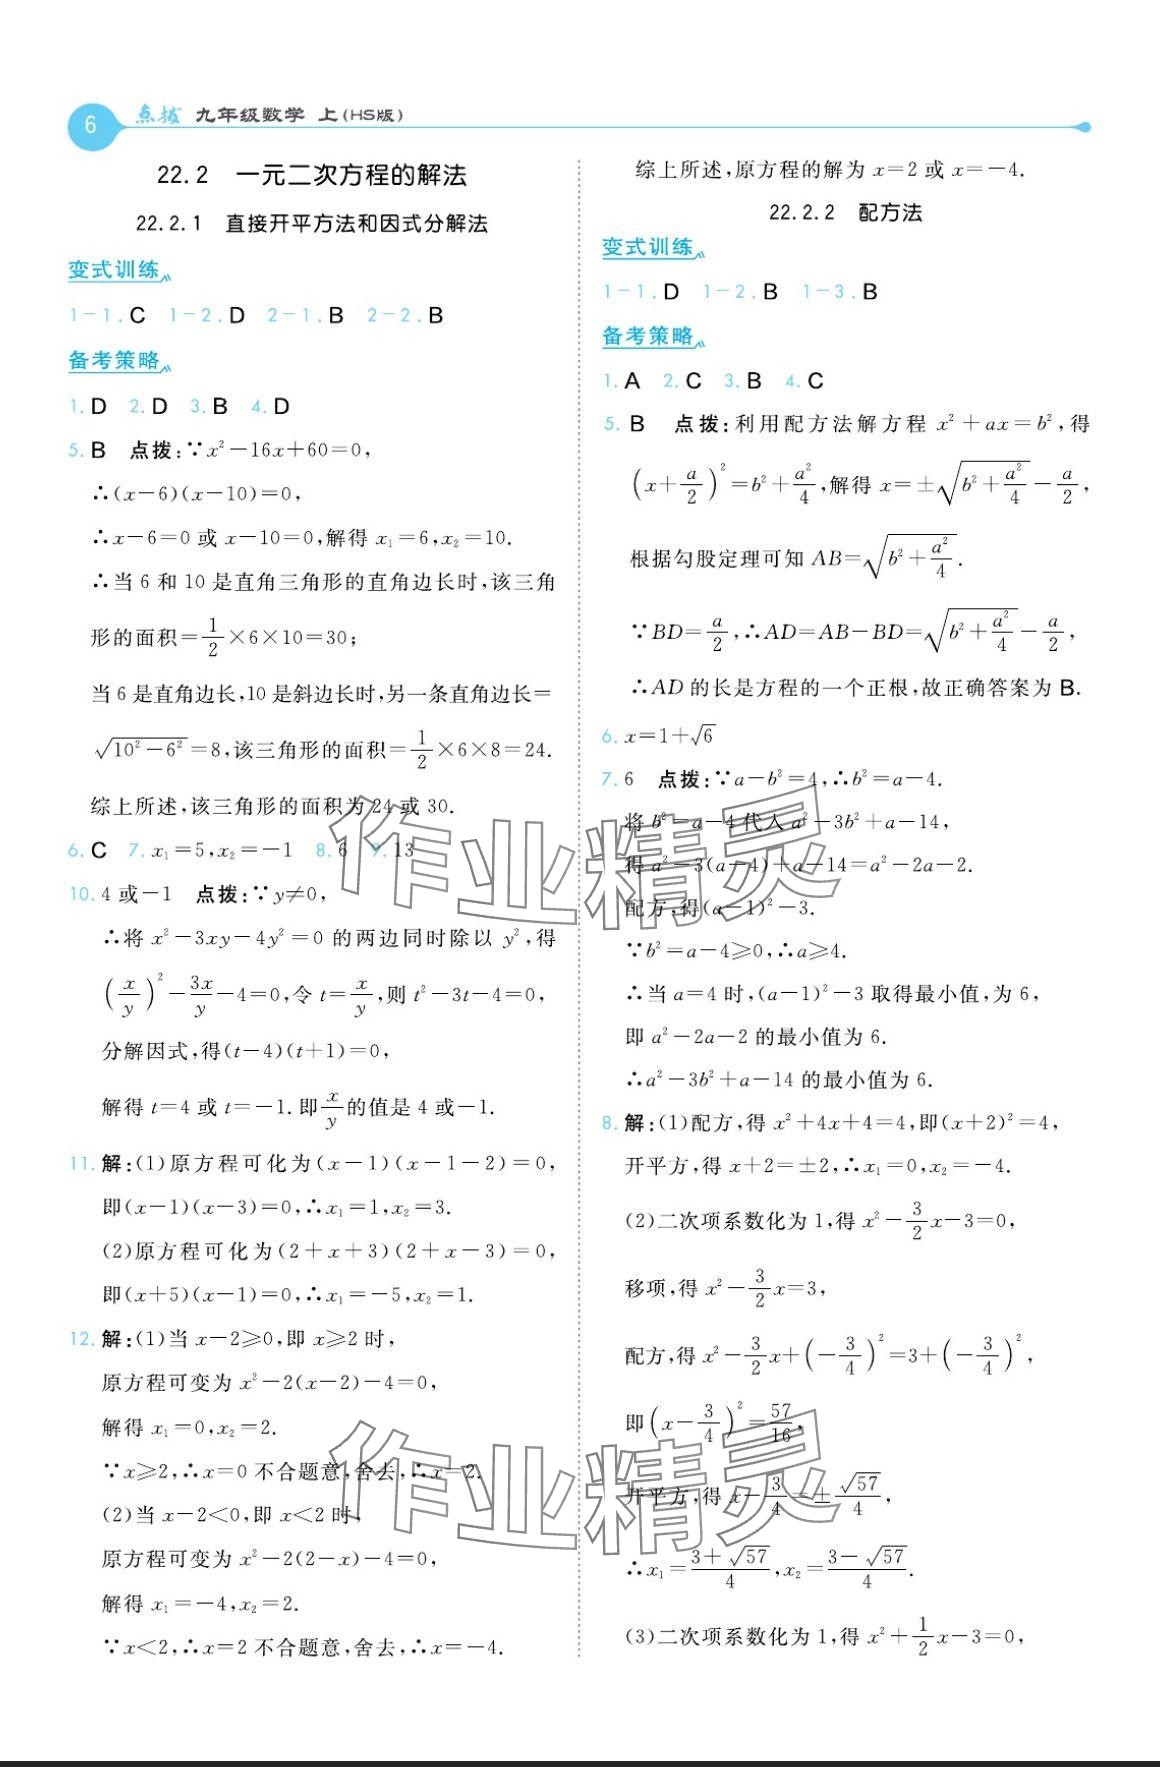 6 点拨 九年级数学 上(HS版)
22.2 一元二次方程的解法
22.2.1 直接开平方法和因式分解法
变式训练
1-1.C 1-2.D 2-1.B 2-2.B
备考策略
1.D 2.D 3.B 4.D
5.B 点拨:∵x²-16x+60=0,
∴(x-6)(x-10)=0,
∴x-6=0 或 x-10=0,解得 x₁=6,x₂=10.
∴当 6 和 10 是直角三角形的直角边长时,该三角
形的面积=1/2×6×10=30;
当 6 是直角边长,10 是斜边长时,另一条直角边长=
√(10²-6²)=8,该三角形的面积=1/2×6×8=24.
综上所述,该三角形的面积为 24 或 30.
6.C 7.x₁=5,x₂=-1 8.6 9.13
10.4 或-1 点拨:∵y≠0,
∴将 x²-3xy-4y²=0 的两边同时除以 y²,得
(x/y)²-3x/y-4=0,令 t=x/y,则 t²-3t-4=0,
分解因式,得(t-4)(t+1)=0,
解得 t=4 或 t=-1.即x/y的值是 4 或-1.
11.解:(1)原方程可化为(x-1)(x-1-2)=0,
即(x-1)(x-3)=0,∴x₁=1,x₂=3.
(2)原方程可化为(2+x+3)(2+x-3)=0,
即(x+5)(x-1)=0,∴x₁=-5,x₂=1.
12.解:(1)当 x-2≥0,即 x≥2 时,
原方程可变为 x²-2(x-2)-4=0,
解得 x₁=0,x₂=2.
∵x≥2,∴x=0 不合题意,舍去,∴x=2.
(2)当 x-2<0,即 x<2 时,
原方程可变为 x²-2(2-x)-4=0,
解得 x₁=-4,x₂=2.
∵x<2,∴x=2 不合题意,舍去,∴x=-4.
综上所述,原方程的解为 x=2 或 x=-4.
22.2.2 配方法
变式训练
1-1.D 1-2.B 1-3.B
备考策略
1.A 2.C 3.B 4.C
5.B 点拨:利用配方法解方程 x²+ax=b²,得
(x+a/2)²=b²+a²/4,解得 x=±√(b²+a²/4)-a/2,
根据勾股定理可知 AB=√(b²+a²/4).
∵BD=a/2,∴AD=AB-BD=√(b²+a²/4)-a/2,
∴AD 的长是方程的一个正根,故正确答案为 B.
6.x=1+√6
7.6 点拨:∵a-b²=4,∴b²=a-4.
将 b²=a-4 代入 a²-3b²+a-14,
得 a²-3(a-4)+a-14=a²-2a-2.
配方,得(a-1)²-3.
∵b²=a-4≥0,∴a≥4.
∴当 a=4 时,(a-1)²-3 取得最小值,为 6,
即 a²-2a-2 的最小值为 6.
∴a²-3b²+a-14 的最小值为 6.
8.解:(1)配方,得 x²+4x+4=4,即(x+2)²=4,
开平方,得 x+2=±2,∴x₁=0,x₂=-4.
(2)二次项系数化为 1,得 x²-3/2x-3=0,
移项,得 x²-3/2x=3,
配方,得 x²-3/2x+(-3/4)²=3+(-3/4)²,
即(x-3/4)²=57/16,
开平方,得 x-3/4=±√57/4,
∴x₁=(3+√57)/4,x₂=(3-√57)/4.
(3)二次项系数化为 1,得 x²+1/2x-3=0,
作业精灵
作业精灵